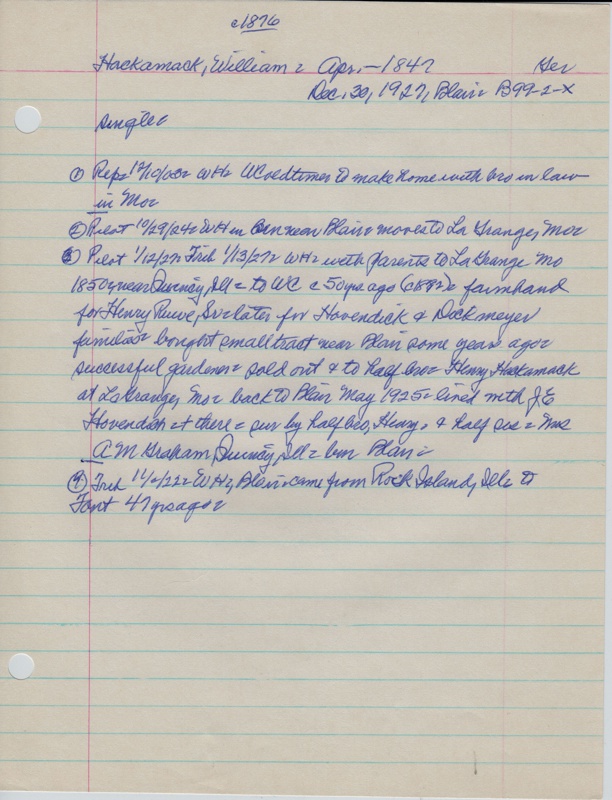 c1876
Hackamack, William = Apr. - 1847 Ger
Dec. 30, 1927, Blair = B99-2-X
single =
① Rep = WH = WC oldtimer to make home with bro in law
in Mo =
② Pilot 10/29/24 = WH in near Blair = moves to La Grange, Mo =
③ Pilot 1/12/27 Trib 1/13/27 = WH = with parents to LaGrange Mo
1850, near Quincy, Ill = to WC c 50 yrs ago = farmhand
for Henry Sr = later for Hovendick & Dockmeyer
families = bought small tract near Blair some years ago =
successful gardener = sold out & to half bro = Henry Hackamack
at LaGrange, Mo = back to Blair May 1925 = lived with J E
Hovendick + there = sur by half bro, Henry, & half sis = Mrs
A M Graham, Quincy, Ill = Blair =
④ Trib = WH, Blair = came from Rock Island, Ill = to
Font 47 yrs ago =